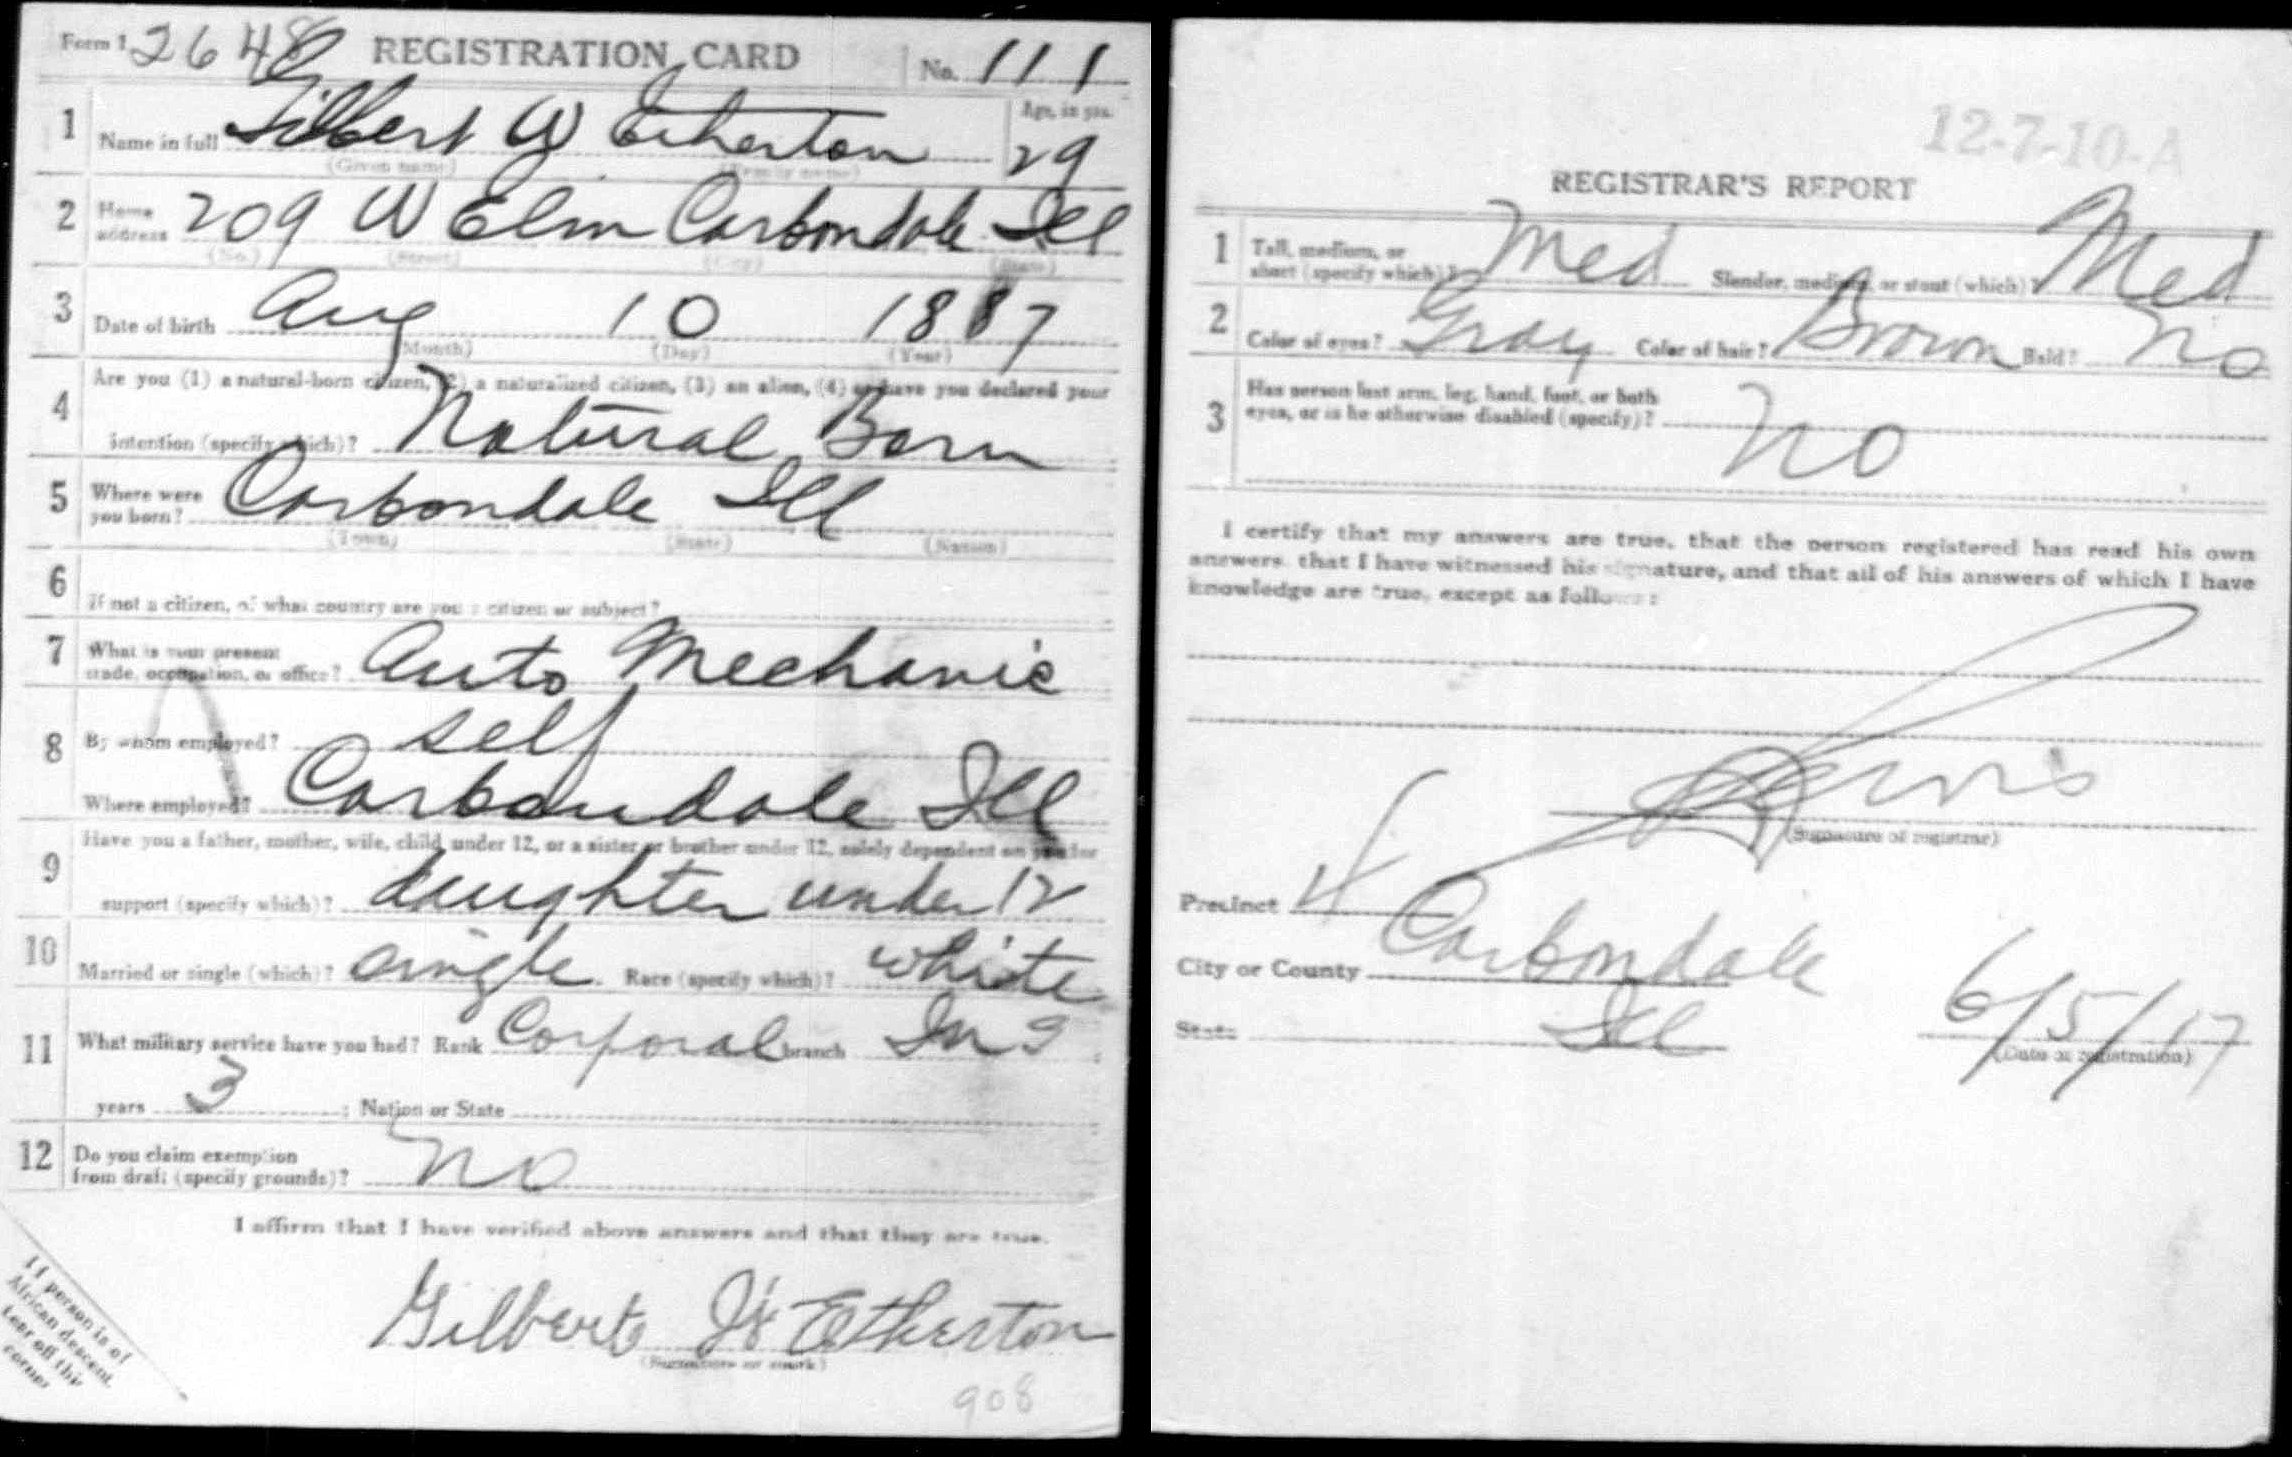 Form 1 2648 REGISTRATION CARD No. 111
1 Name in full Gilbert W Etherton Age, in yrs. 29
(Given name) (Family name)
2 Home address 209 W Elm Carbondale Ill
(No.) (Street) (City) (State)
3 Date of birth Aug 10 1887
(Month) (Day) (Year)
4 Are you (1) a natural-born citizen, (2) a naturalized citizen, (3) an alien, (4) or have you declared your
intention (specify which)? Natural Born
5 Where were you born? Carbondale Ill
(Town) (State) (Nation)
6 If not a citizen, of what country are you a citizen or subject?
7 What is your present trade, occupation, or office? Auto Mechanic
8 By whom employed? self
Where employed? Carbondale Ill
9 Have you a father, mother, wife, child under 12, or a sister or brother under 12, solely dependent on you for
support (specify which)? daughter under 12
10 Married or single (which)? single Race (specify which)? white
11 What military service have you had? Rank Corporal branch Inf ;
years 3 ; Nation or State
12 Do you claim exemption
from draft (specify grounds)? No
I affirm that I have verified above answers and that they are true.
Gilbert W Etherton
(Signature or mark)
If person is of
African descent,
tear off this
corner
908
12-7-10-A
REGISTRAR'S REPORT
1 Tall, medium, or
short (specify which)? Med Slender, medium, or stout (which)? Med
2 Color of eyes? Gray Color of hair? Brown Bald? No
3 Has person lost arm, leg, hand, foot, or both
eyes, or is he otherwise disabled (specify)? No
I certify that my answers are true, that the person registered has read his own
answers, that I have witnessed his signature, and that all of his answers of which I have
knowledge are true, except as follows:
(Signature of registrar)
Precinct 4
City or County Carbondale
State Ill 6/5/17
(Date of registration)